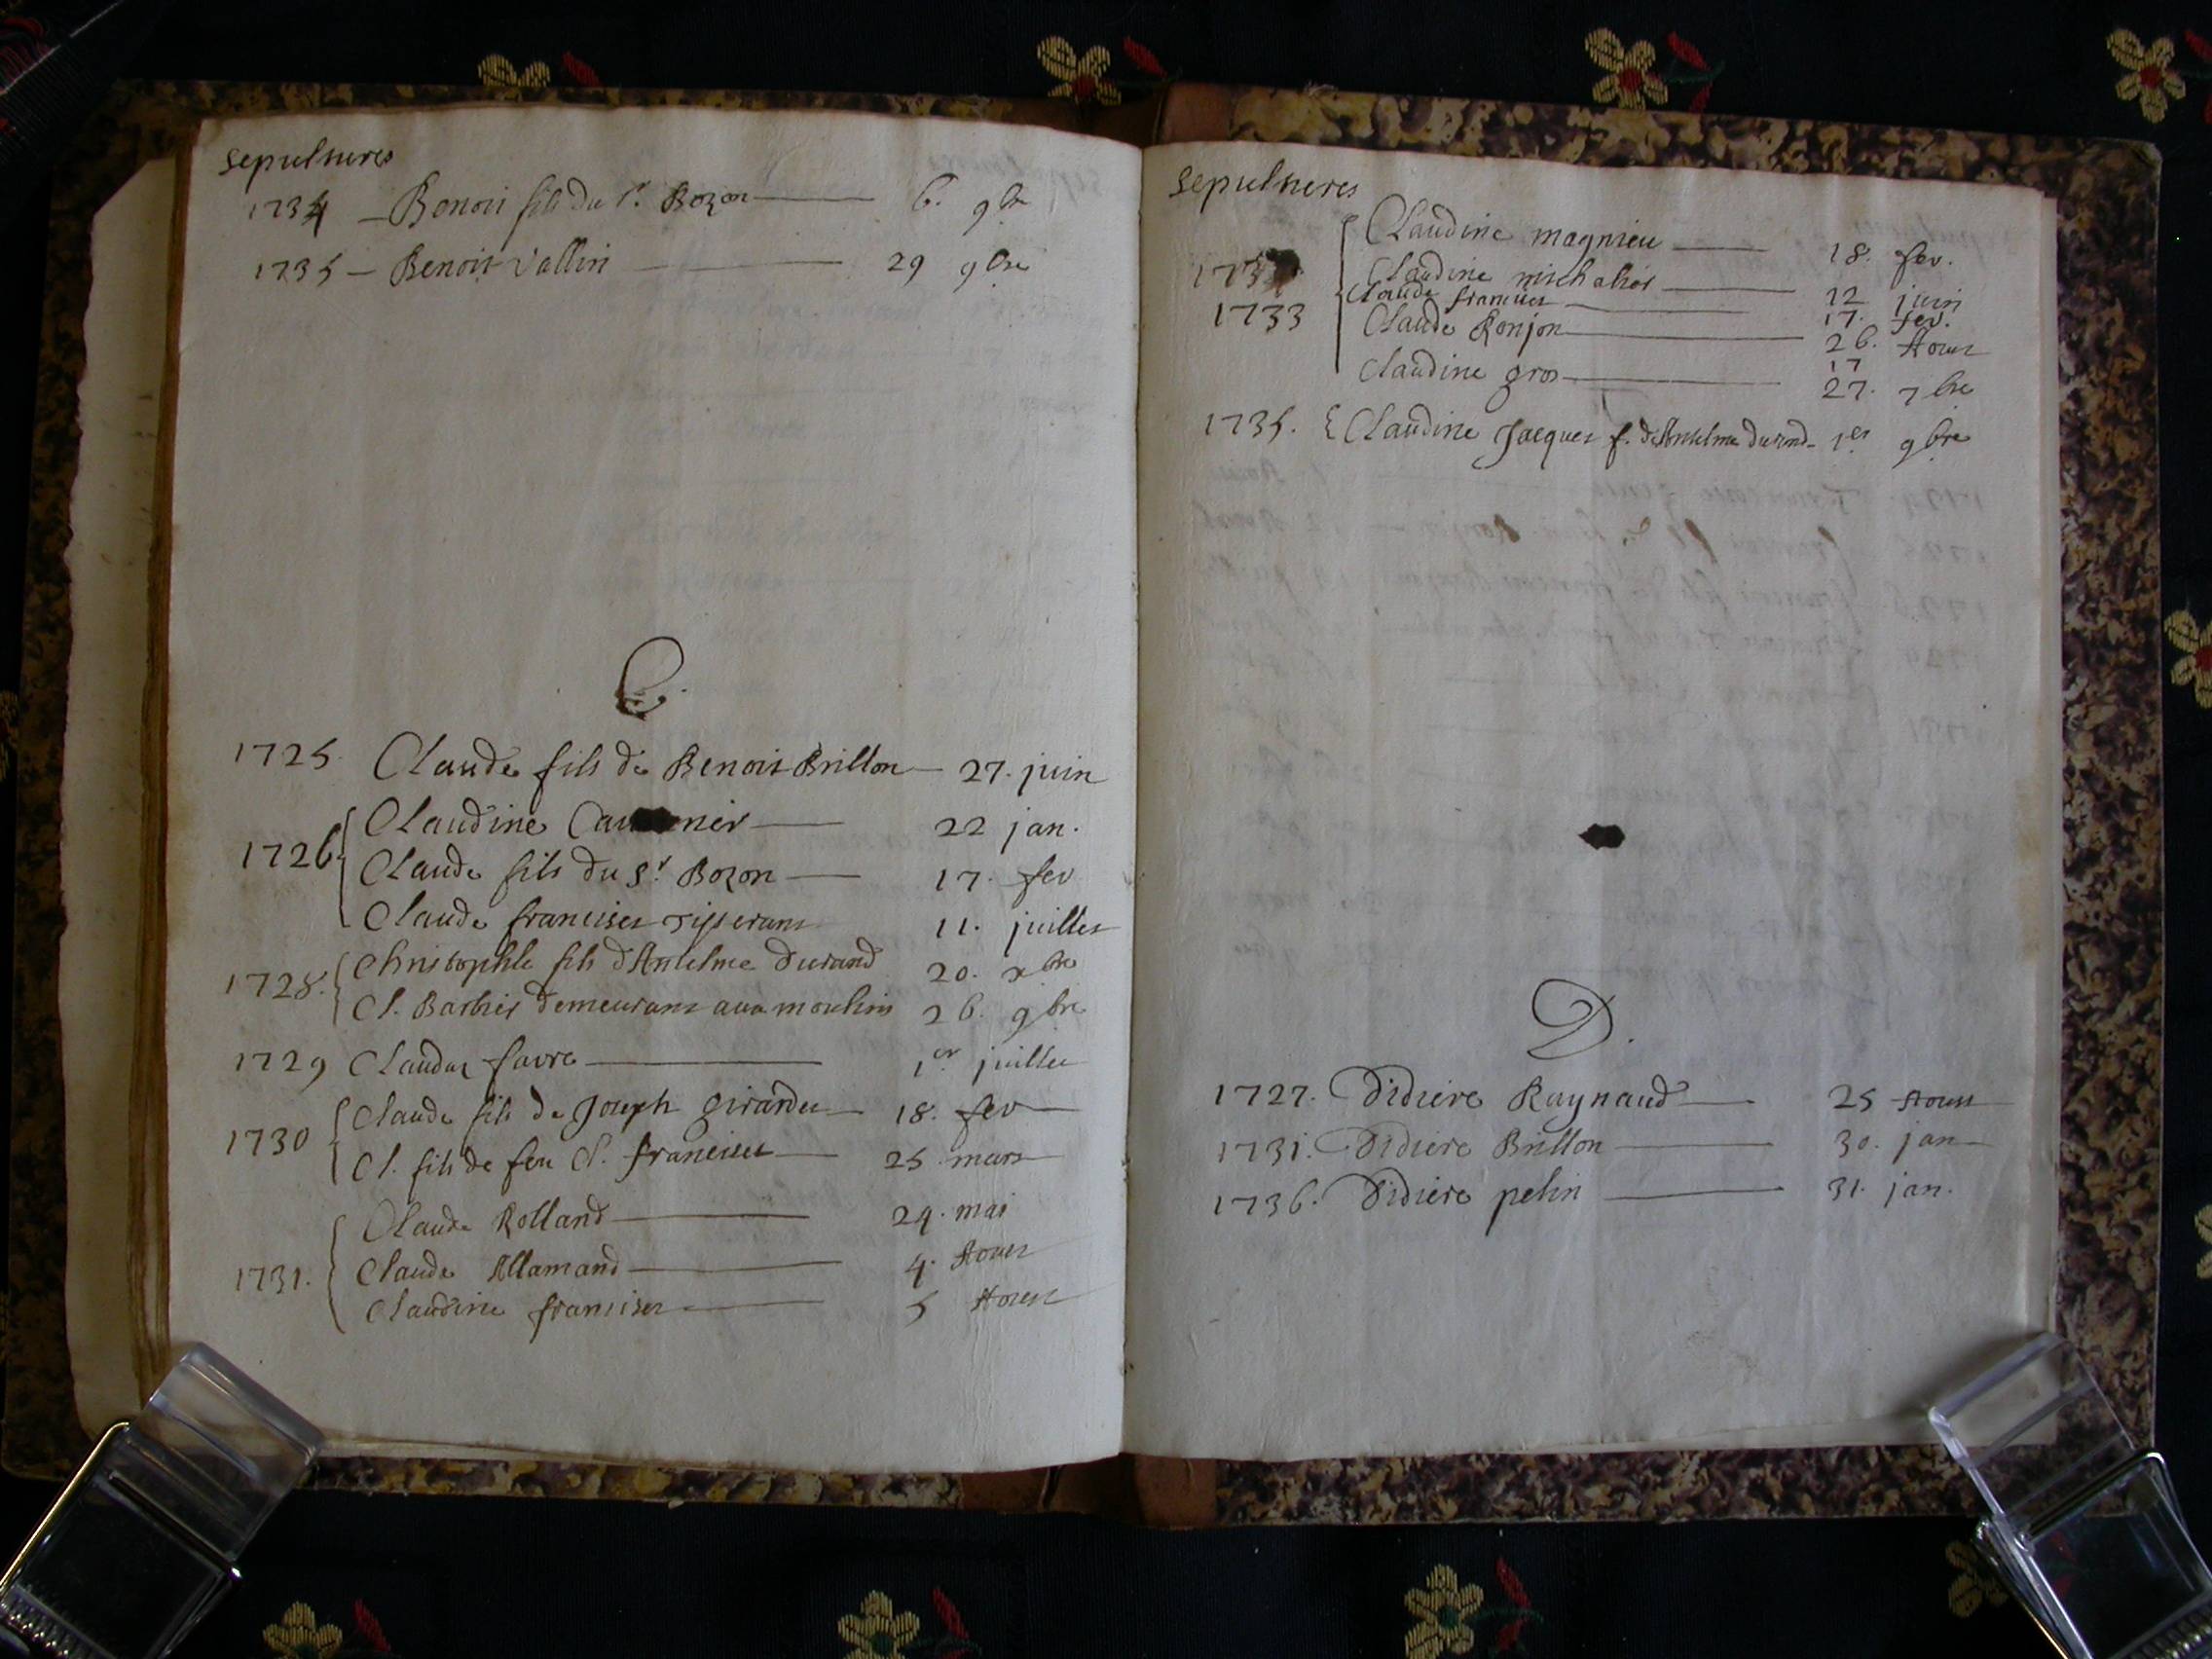 sepultures
1734 - Benoit fils du Sr. Bozon 6. 9bre
1735 - Benoit Vallin 29 9bre
C.
1725. Claude fils de Benoit Brillon 27. juin
Claudine 22 jan.
1726. Claude fils du Sr. Bozon 17. fev
Claude franciset Tisserant 11. juillet
Christophle fils d'Antelme Durand 20. xbre
1728. Cl. Barbier demeurant aux moulins 26. 9bre
1729 Claudat favre 1er juillet
Claude fils de Joseph Girardet 18. fev
1730 Cl. fils de feu Cl. franciset 25 mars
Claude Rolland 24. mai
1731. Claude Allamand 4. Aoust
Claudine franciset 5 Aoust
sepultures
Claudine magnieu 18. fev.
Claudine 12 juin
Claude franciset 17. fev.
1733 Claude Ronjon 26. Aoust
17
Claudine gros 27. 7bre
1735. { Claudine Jacquet f. d'Antelme durand 1er 9bre
D.
1727. Didiere Raynaud 25 Aoust
1731. Didiere Brillon 30. jan
1736. Didiere pelin 31. jan.